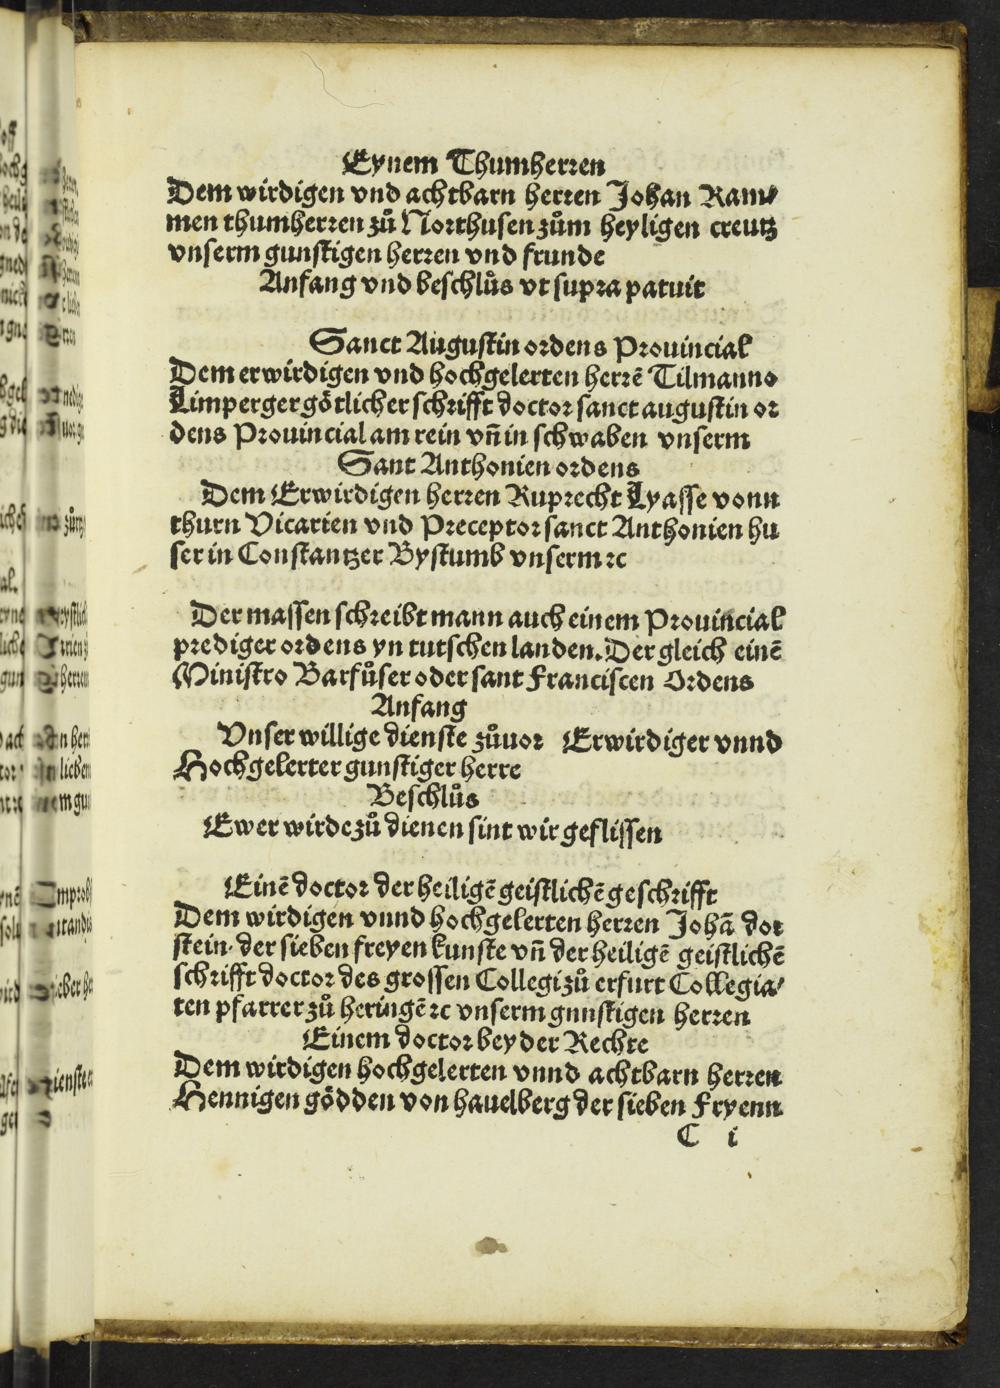 Eynem Thumherren
Dem wirdigen vnd achtbarn herren Johan Ram⸗
men thumherren zů Northusen zům heyligen creutz
vnserm gunstigen herren vnd frunde
Anfang vnd beschlůs vt supra patuit
Sanct Augustin ordens Prouincial
Dem erwirdigen vnd hochgelerten herrē Tilmanno
Limperger götlicher schrifft doctor sanct augustin or
dens Prouincial am rein vn̄ in schwaben vnserm
Sant Anthonien ordens
Dem Erwirdigen herren Ruprecht Lyasse vonn
thurn Vicarien vnd Preceptor sanct Anthonien hu
ser in Constantzer Bystumb vnserm ⁊c
Der massen schreibt mann auch einem Prouincial
prediger ordens yn tutschen landen. Der gleich einē
Ministro Barfůser oder sant Franciscen Ordens
Anfang
Vnser willige dienste zůuor Erwirdiger vnnd
Hochgelerter gunstiger herre
Beschlůs
Ewer wirde zů dienen sint wir geflissen
Einē doctor der heiligē geistlichē geschrifft
Dem wirdigen vnnd hochgelerten herren Johā dor
stein· der sieben freyen kunste vn̄ der heiligē geistlichē
schrifft doctor des grossen Collegi zů erfurt Collegia⸗
ten pfarrer zů heringē ⁊c vnserm gnnstigen herren
Einem doctor beyder Rechte
Dem wirdigen hochgelerten vnnd achtbarn herren
Hennigen gödden von hauelberg der sieben Fryenn
C i